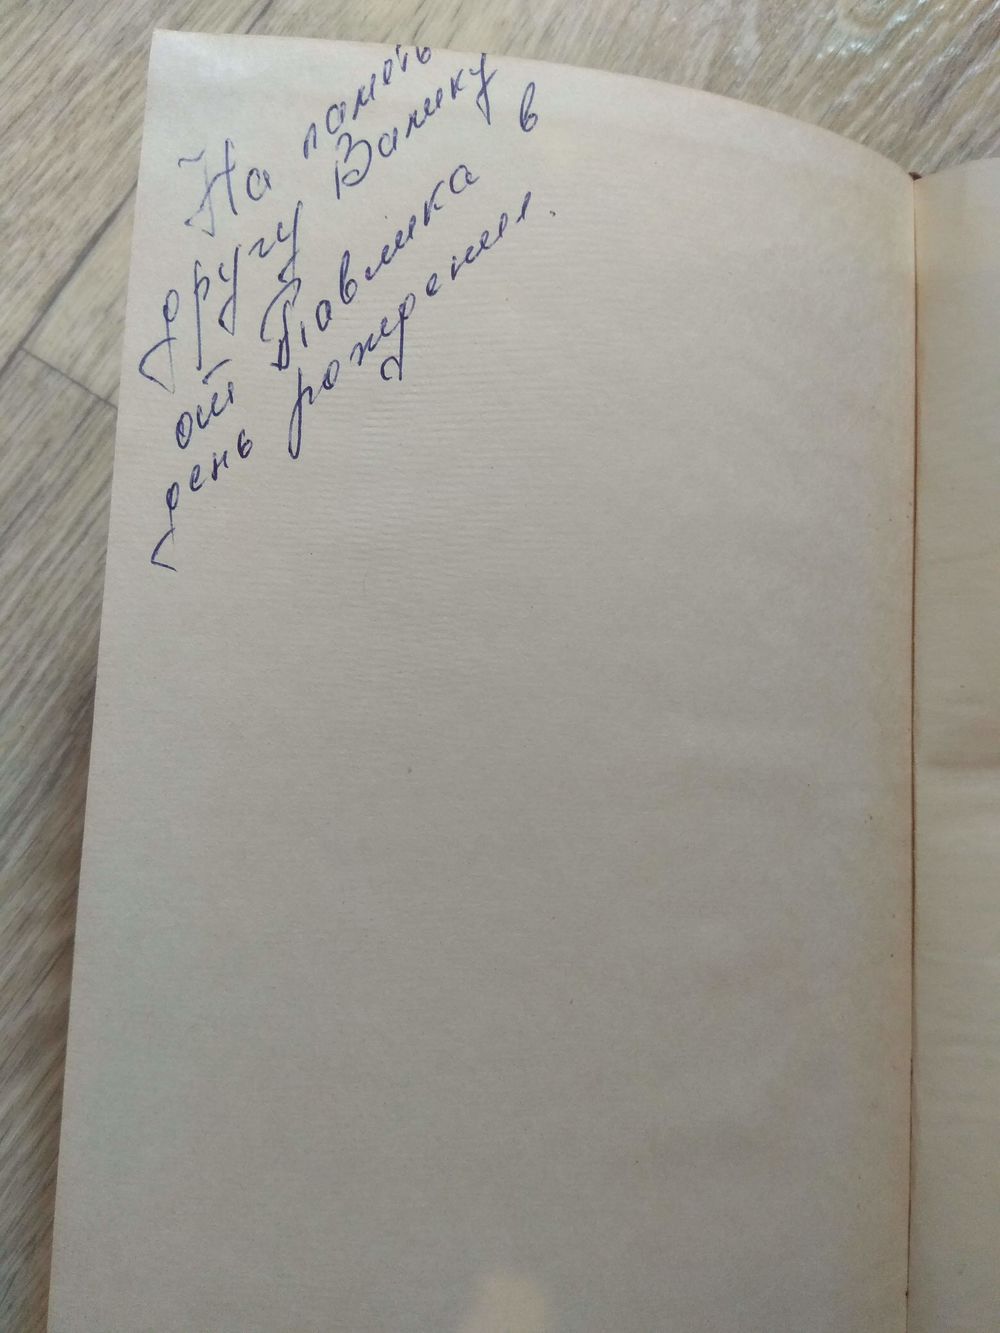 На память
другу Ванику
от Павлика в
день рождения.